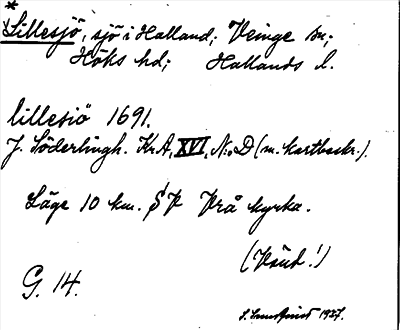 *
Lillesjö, sjö i Halland; Veinge sn;
Höks hd; Hallands l.
lillesiö 1691.
J. Söderlingh. Kr.A, XVI, N:o D (m. kartbeskr.).
Läge 10 km. SV Vrå kyrka.
(Vänd!)
G. 14.
1927.